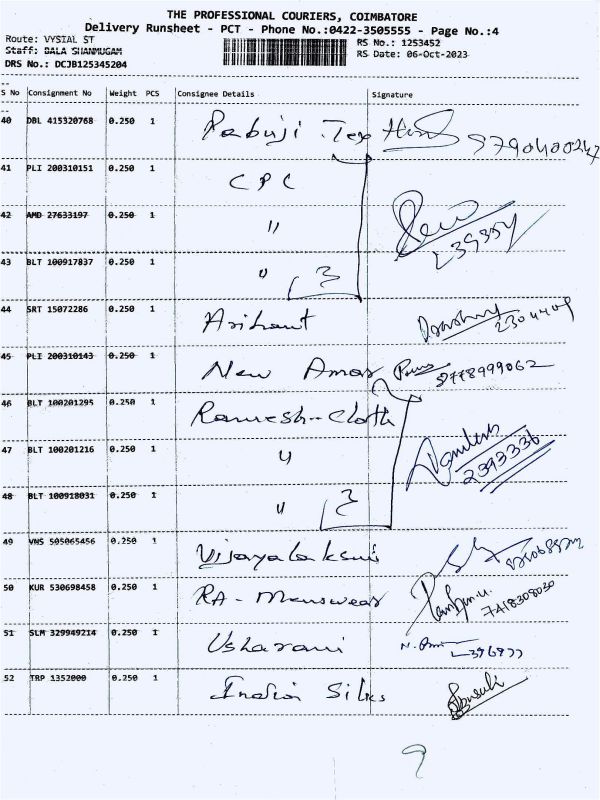 THE PROFESSIONAL COURIERS, COIMBATORE
Delivery Runsheet - PCT - Phone No.:0422-3505555 - Page No.:4
Route: VYSIAL ST RS No.: 1253452
Staff: BALA SHANMUGAM RS Date: 06-Oct-2023
DRS No.: DCJB125345204
S No Consignment No Weight PCS Consignee Details Signature
40 DBL 415320768 0.250 1 Pabuji Tex
41 PLI 200310151 0.250 1 CPC
42 AMD 27633197 0.250 1 "
43 BLT 100917837 0.250 1 " 3
44 SRT 15072286 0.250 1 Arihant
45 PLI 200310143 0.250 1 New Amar 8778999062
46 BLT 100201295 0.250 1 Ramesh-Cloth
47 BLT 100201216 0.250 1 " 2393336
48 BLT 100918031 0.250 1 " 3
49 VNS 505065456 0.250 1 Vijayalaksmi
50 KUR 530698458 0.250 1 RA - Menswear 7418308030
51 SLM 329949214 0.250 1 Usharani
52 TRP 1352000 0.250 1 India Silks